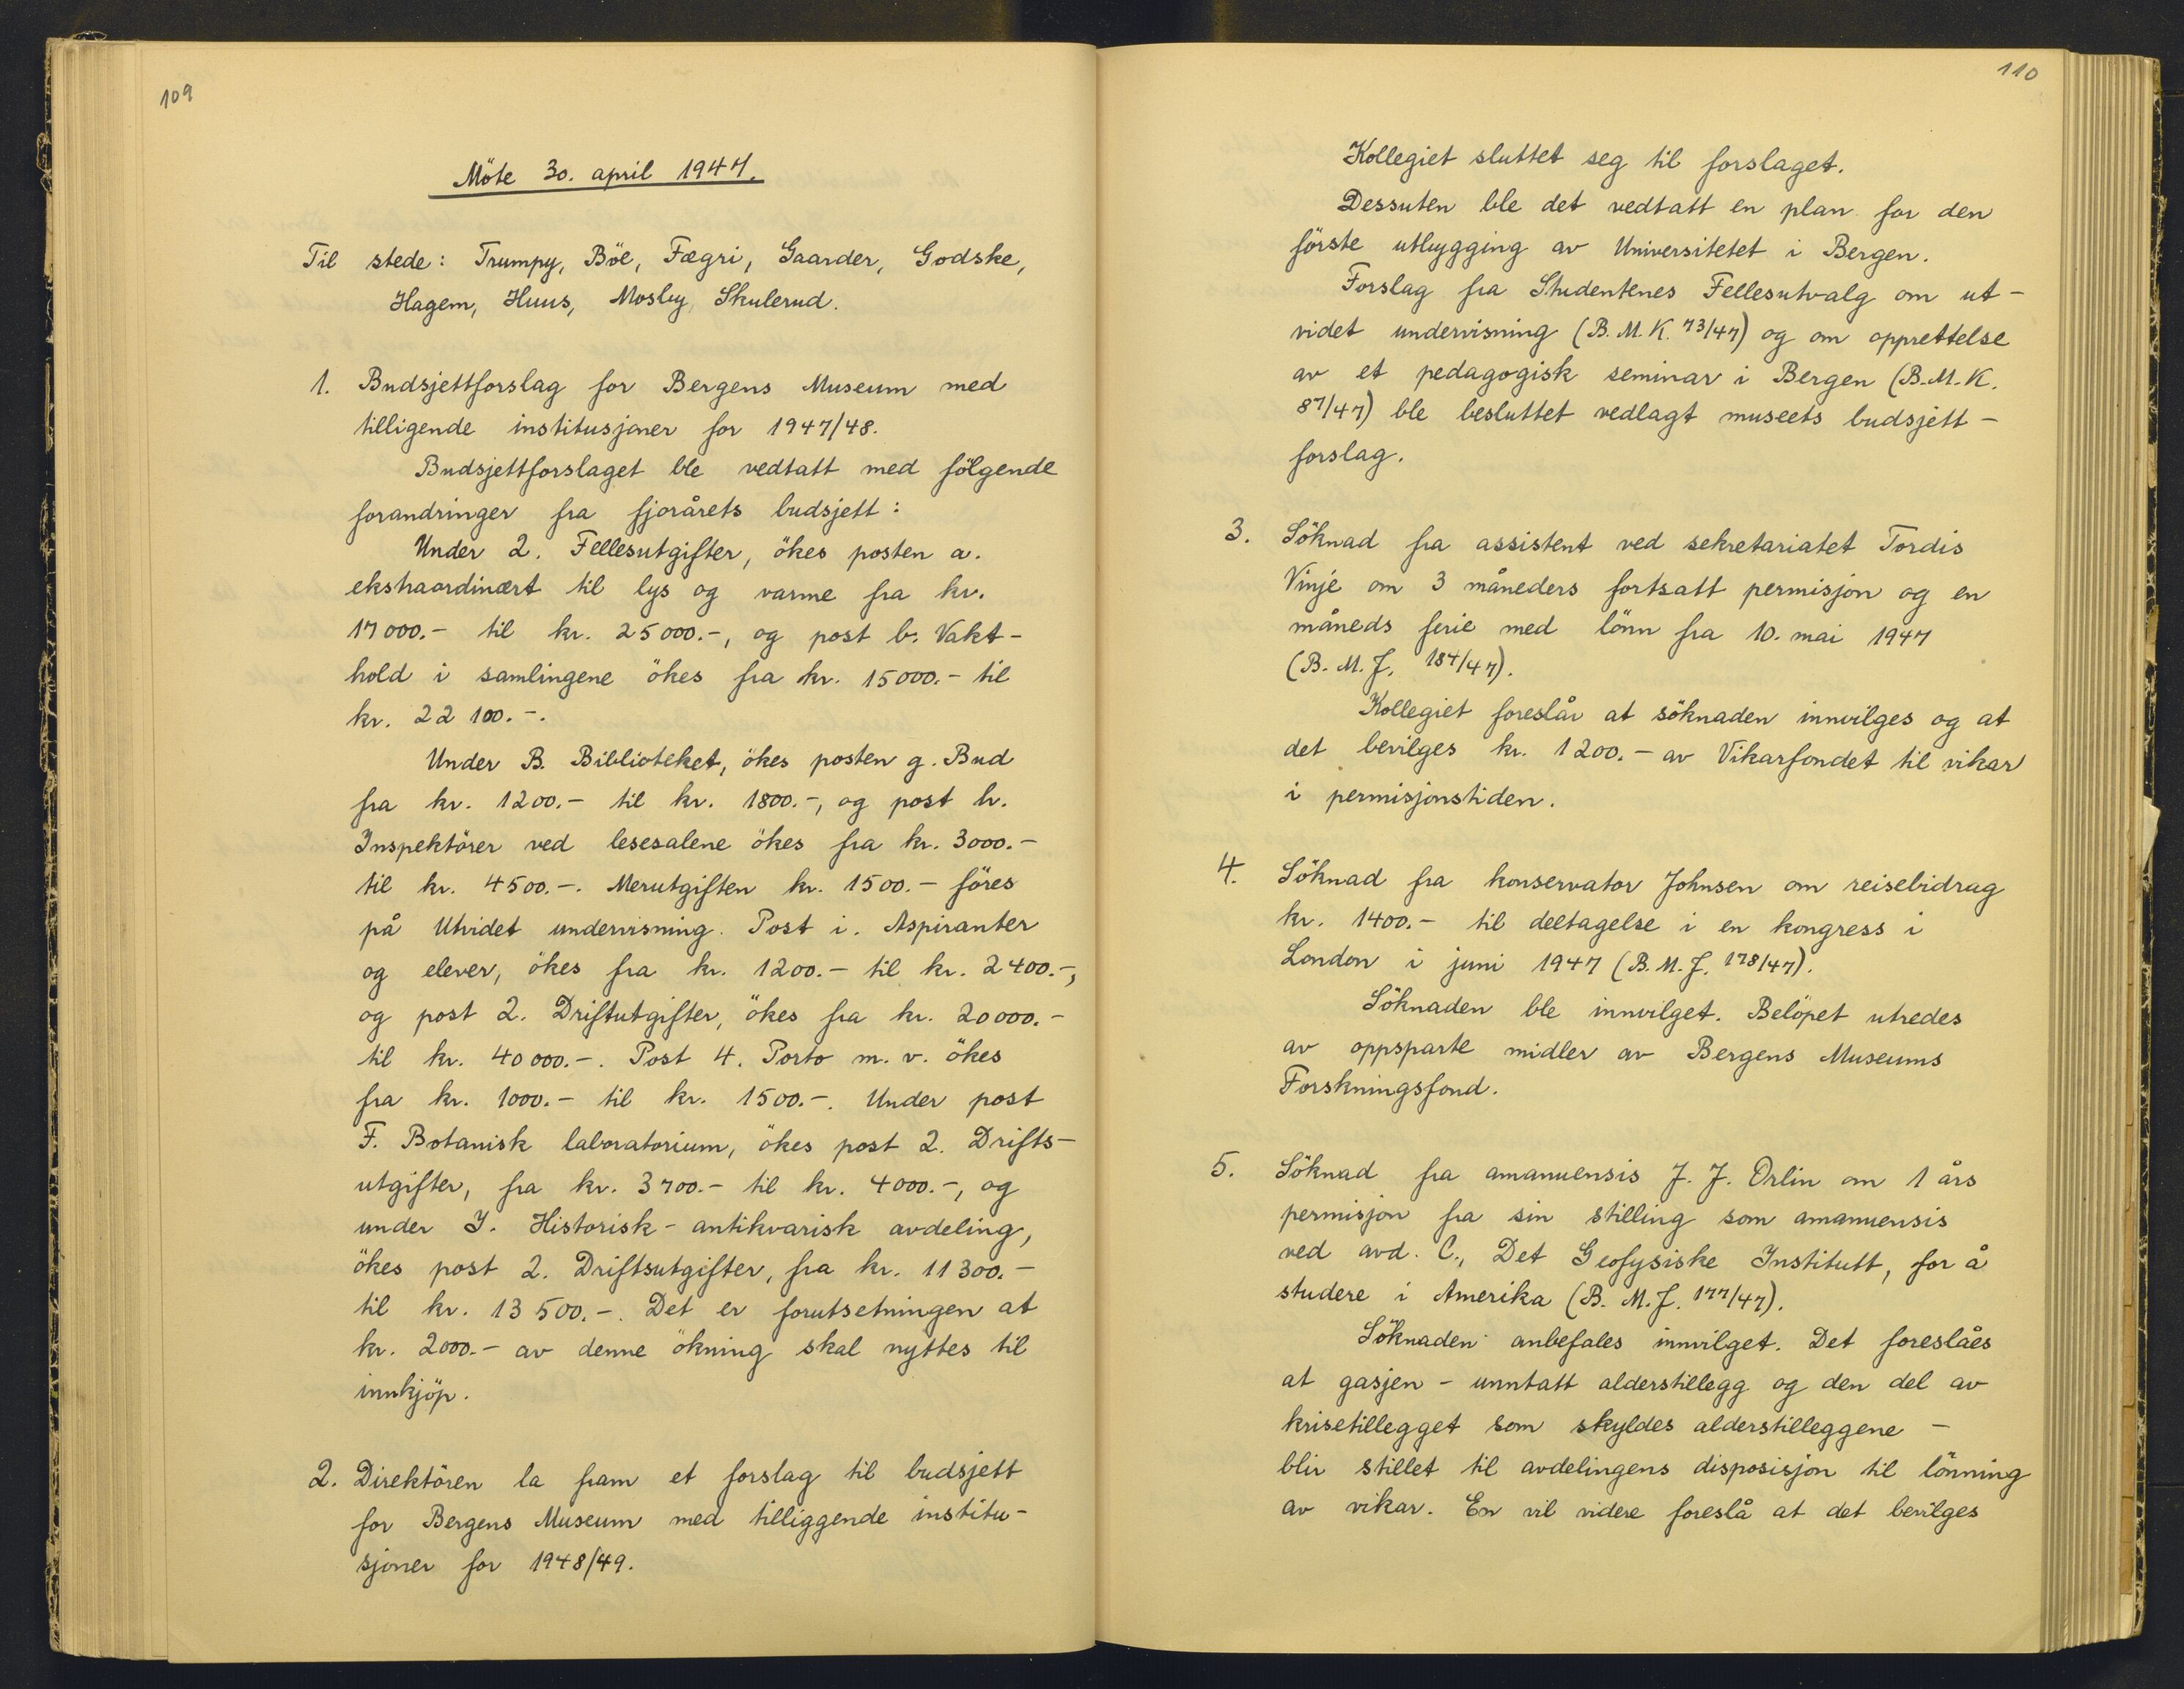 109
Möte 30. april 1947.
Til stede: Trumpy, Böe, Fægri, Gaarder, Godske,
Hagem, Huus, Mosby, Skulerud.
1. Budsjettforslag for Bergens Museum med
tilligende institusjoner for 1947/48.
Budsjettforslaget ble vedtatt med fölgende
forandringer fra fjorårets budsjett:
Under 2. Fellesutgifter, ökes posten a.
ekstraordinært til lys og varme fra kr.
17000.- til kr. 25000.-, og post b. Vakt-
hold i samlingene ökes fra kr. 15000.- til
kr. 22 100.-.
Under B. Biblioteket, ökes posten g. Bud
fra kr. 1200.- til kr. 1800.-, og post h.
Inspektörer ved lesesalene ökes fra kr. 3000.-
til kr. 4500.-. Merutgiften kr. 1500.- föres
på Utvidet undervisning. Post i. Aspiranter
og elever, ökes fra kr. 1200.- til kr. 2400.-,
og post 2. Driftutgifter, ökes fra kr. 20000.-
til kr. 40000.-. Post 4. Porto m. v. ökes
fra kr. 1000.- til kr. 1500.-. Under post
F. Botanisk laboratorium, ökes post 2. Drifts-
utgifter, fra kr. 3700.- til kr. 4000.-, og
under I. Historisk-antikvarisk avdeling,
ökes post 2. Driftsutgifter, fra kr. 11300.-
til kr. 13500.-. Det er forutsetningen at
kr. 2000.- av denne ökning skal nyttes til
innkjöp.
2. Direktören la fram et forslag til budsjett
for Bergens Museum med tilliggende institu-
sjoner for 1948/49.
110
Kollegiet sluttet seg til forslaget.
Dessuten ble det vedtatt en plan for den
förste utbygging av Universitetet i Bergen.
Forslag fra Studentenes Fellesutvalg om ut-
videt undervisning (B.M.K. 73/47) og om opprettelse
av et pedagogisk seminar i Bergen (B.M.K.
87/47) ble besluttet vedlagt museets budsjett-
forslag.
3. Söknad fra assistent ved sekretariatet Tordis
Vinje om 3 måneders fortsatt permisjon og en
måneds ferie med lönn fra 10. mai 1947
(B.M.J. 184/47).
Kollegiet foreslår at söknaden innvilges og at
det bevilges kr. 1200.- av Vikarfondet til vikar
i permisjonstiden.
4. Söknad fra konservator Johnsen om reisebidrag
kr. 1400.- til deltagelse i en kongress i
London i juni 1947 (B.M.J. 178/47).
Söknaden ble innvilget. Belöpet utredes
av oppsparte midler av Bergens Museums
Forskningsfond.
5. Söknad fra amanuensis J. J. Orlin om 1 års
permisjon fra sin stilling som amanuensis
ved avd. C., Det Geofysiske Institutt, for å
studere i Amerika (B.M.J. 177/47).
Söknaden anbefales innvilget. Det foreslåes
at gasjen - unntatt alderstillegg og den del av
krisetillegget som skyldes alderstilleggene -
blir stillet til avdelingens disposisjon til lönning
av vikar. En vil videre foreslå at det bevilges